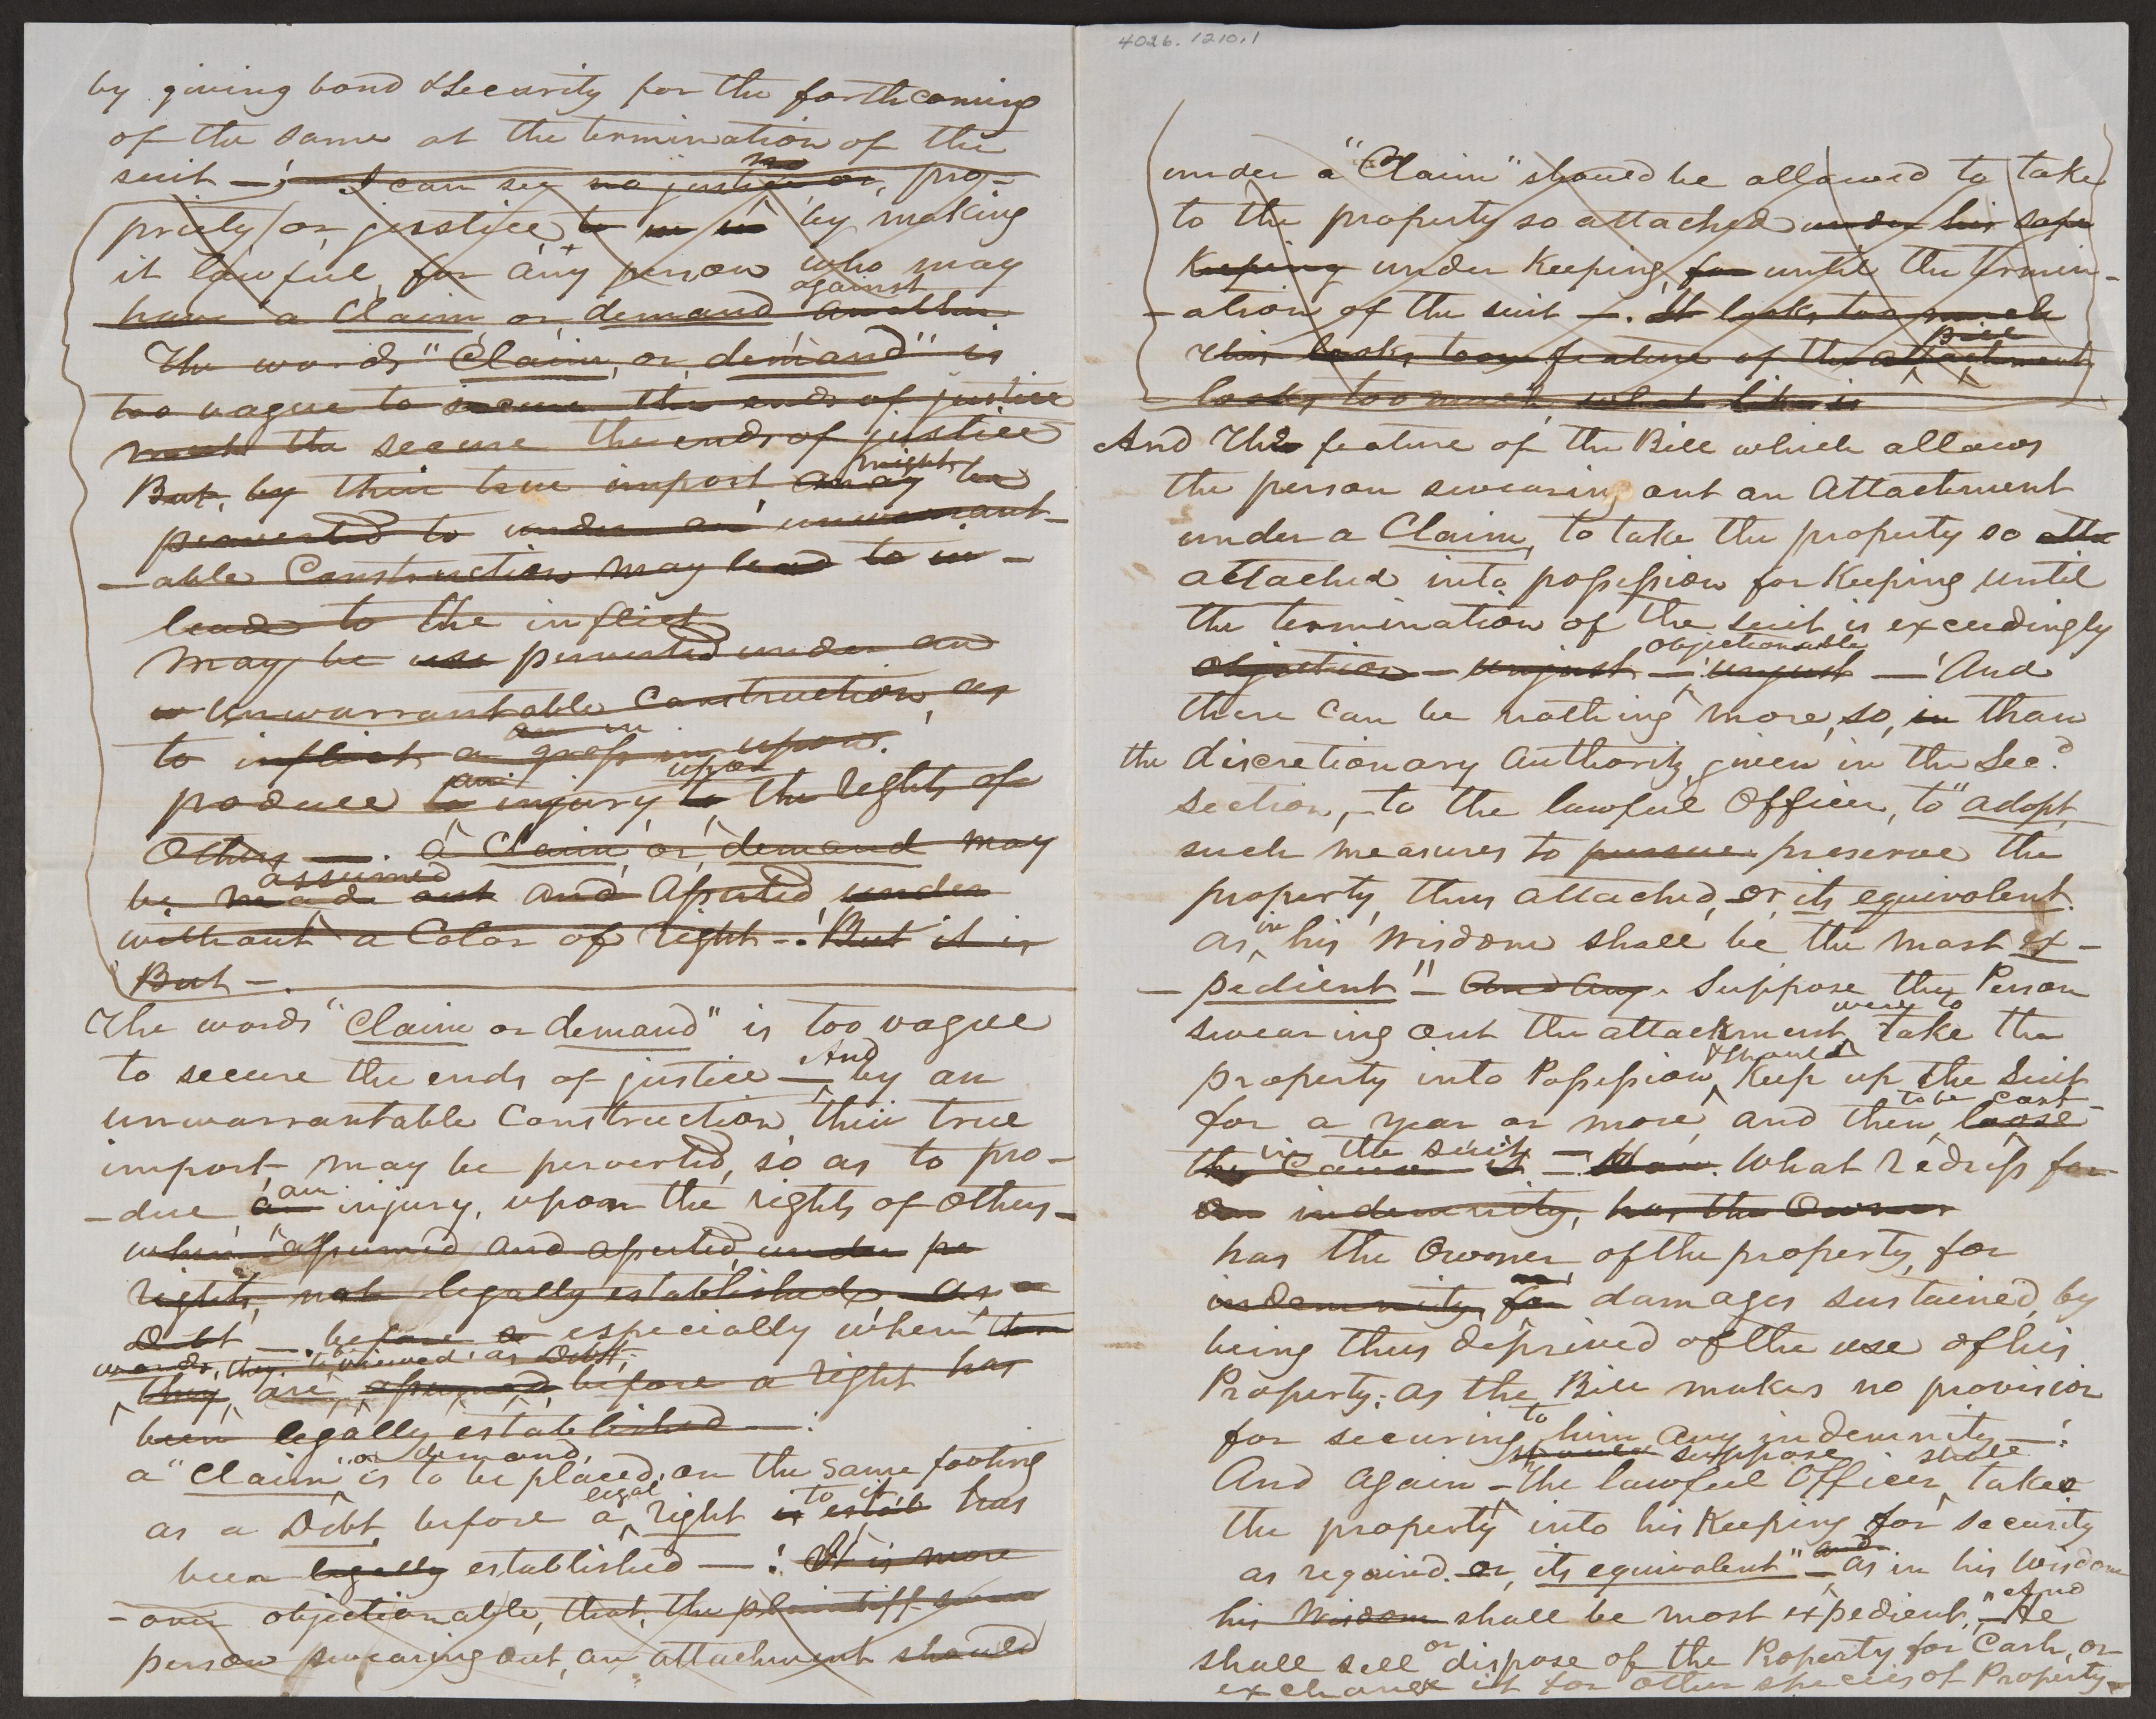 by giving bond & Security for the forthcoming
of the same at the termination of the
suit —; I can see no justice or, pro-
no
priety, or, justice, to in by making
it lawful, for any person who may
against
have a Claim, or, demand another
The words "Claim, or, demand" is
too vague to secure the ends of justice
the secure the ends of justice
might
But, by their true import may be
perverted to under an unwarrant-
-able Construction may lead to in-
lead to the inflict
may be use perverted under an
unwarrantable Construction, as
an in
to inflict a gross in upon.
an upon
produce a injury, to the rights of
Others —. a Claim, or, demand may
assumed
be made out and asserted, under
without a Color of right —. But it is
But —.
The words "Claim or demand" is too vague
And
to secure the ends of justice — by an
unwarrantable Construction, their true
import, may be perverted, so as to pro-
an
-duce, a injury, upon the rights of others —
when assumed and asserted, under pe
rights, not legally established, as a
Debt —. before a especially when the
words, they viewed as Debt,
they, are, assumed, before a right has
been legally established —.
or demand,
a "Claim" is to be placed, on the same footing
legal to it
as a Debt, before a right is estab has
been legally established —: It is more
-over objectionable, that, the plaintiff
person swearing out, an attachment should
4026.1210.1
under a "Claim" should be allowed to take
to the property so attached under his safe
Keeping under Keeping, for until the termin-
-ation of the suit —. It looks too much
Bill
This looks too feature of the attachment
looks too much, what like is
And The feature of the Bill which allows
the person swearing out an Attachment
under a Claim, to take the property so atta
attached into possession for Keeping until
the termination of the suit is exceedingly
objectionable
objection — unjust — unjust — And
there can be nothing more, so, in than
the discretionary Authority, given in the Sec.d
section, to the lawful Officer, to "adopt,
such measures to pursue preserve the
property, thus attached, or, its equivalent.
in
as, his Wisdom shall be the most ex-
-pedient" — And any. Suppose the Person
were to
swearing out the attachment, take the
& should
property into Possession, Keep up the Suit
to be cast
for a year or more, and then, loose
in the suit —
the Cause it —. How. What redress for
an indemnity, has the Owner
has the Owner of the property, for
indemnity, for damages sustained, by
being thus deprived of the use of his
Property: as the Bill makes no provision
to
for securing, him any indemnity —:
suppose shall
And again — The lawful Officer, takes
the property into his Keeping for security
and
as required. or, its equivalent" — as in his Wisdom
his Wisdom shall be most expedient," —He
And
or
shall sell dispose of the Property for Cash, or
exchange it for other species of Property —